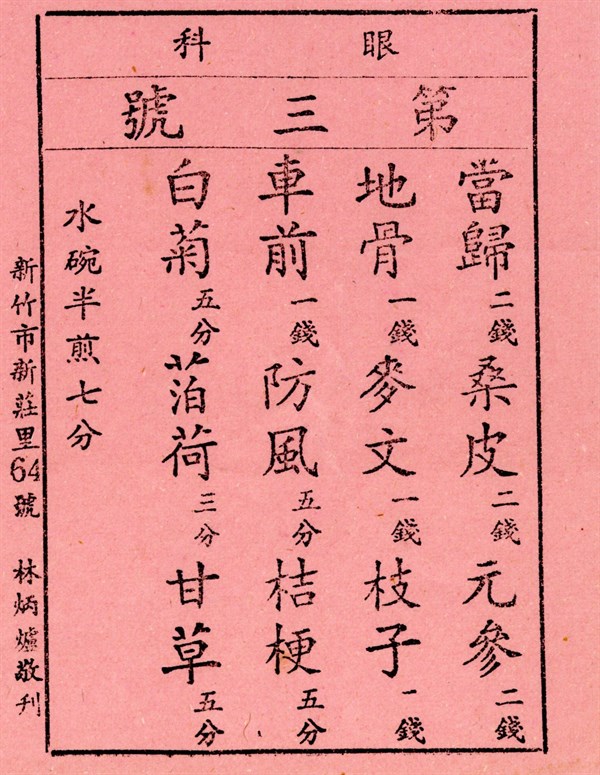 眼科
第三號
當歸二錢 桑皮二錢 元參二錢
地骨一錢 麥文一錢 枝子一錢
車前一錢 防風五分 桔梗五分
白菊五分 萡荷三分 甘草五分
水碗半煎七分
新竹市新莊里64號 林炳爐敬刊